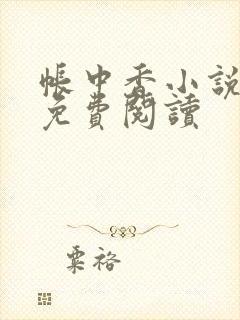 帳中香小說
免費閱讀
粟裕